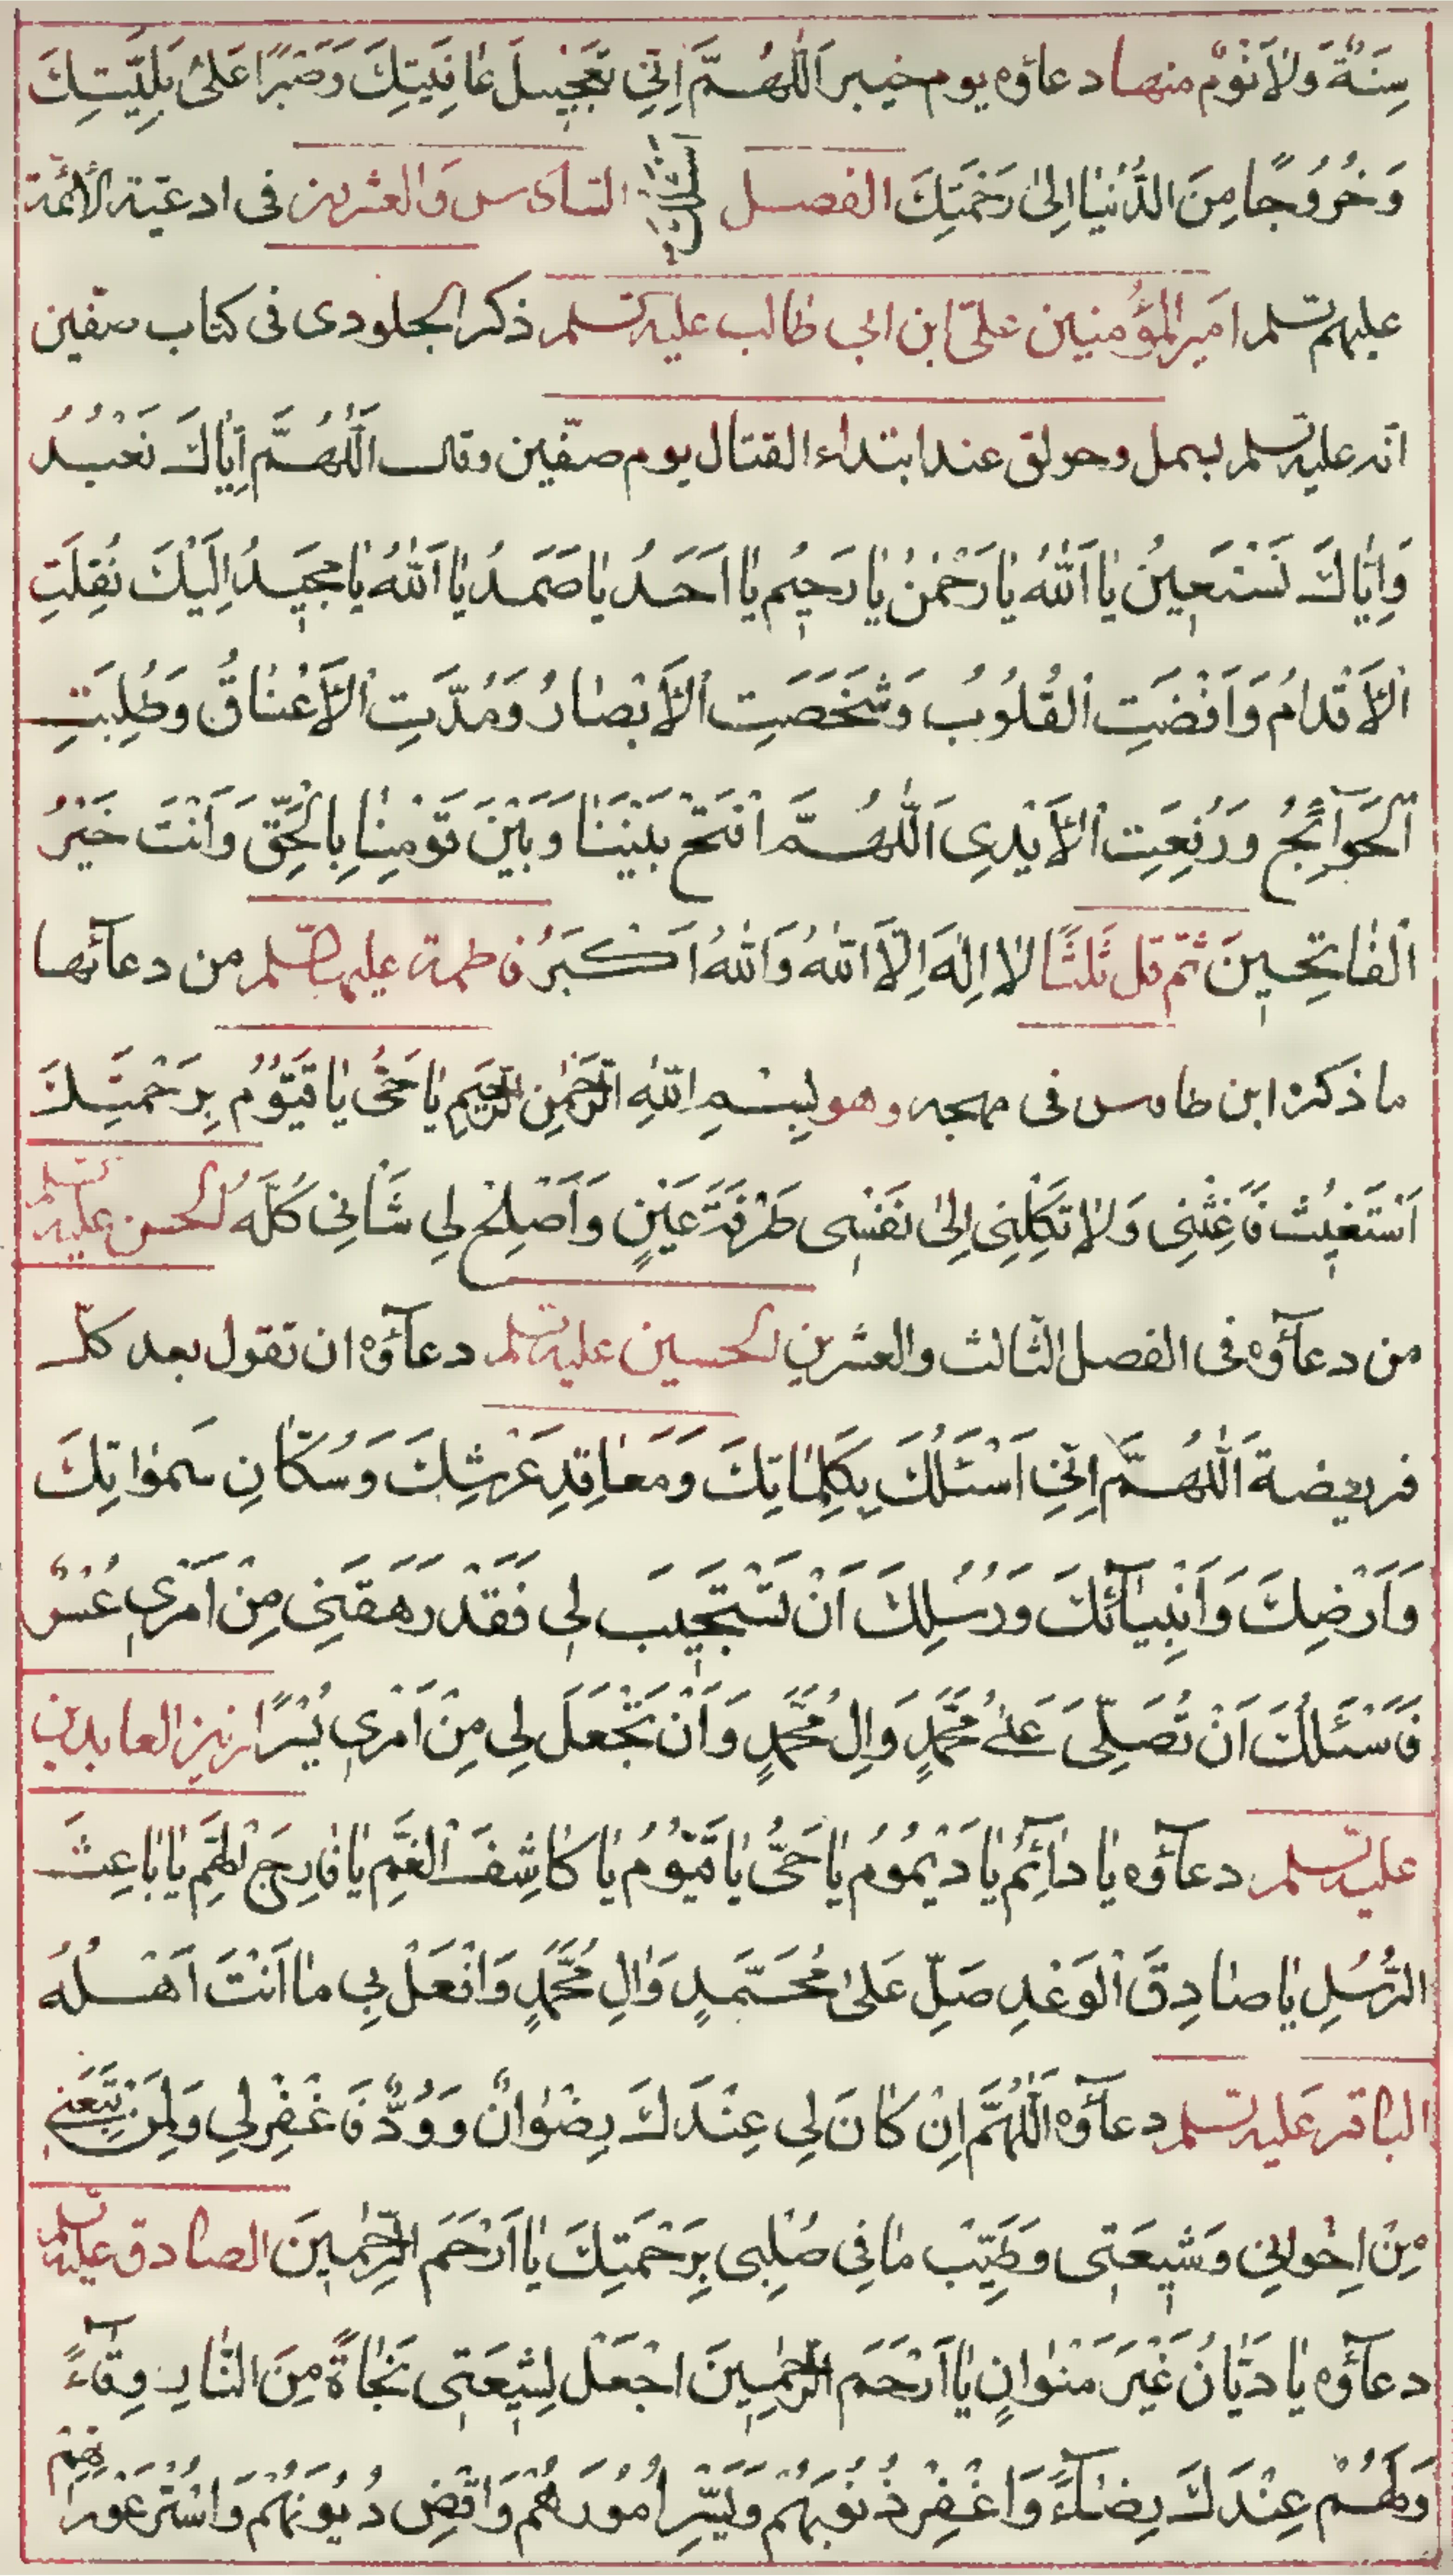 سِنَةٌ وَلاٰ نَوْمٌ منها دعاؤه يوم خيبر اَللّٰهُمَّ اِنّي تَعْجيلَ عٰافِيَتِكَ وَصَبْرًا عَلىٰ بَلِيَّتِكَ
وَخُرُوجًا مِنَ الدُّنْيٰا اِلىٰ رَحْمَتِكَ الفصل السّادس وَالعشرين فى ادعية الأئمّة
عليهم السلم امير المؤمنين علىّ ابن ابى طالب عليه السلم ذكر الجلودى فى كتاب صفّين
انّه عليه السلم بسمل وحولق عند ابتداء القتال يوم صفّين وقال اَللّٰهُمَّ اِيّٰاكَ نَعْبُدُ
وَاِيّٰاكَ نَسْتَعينُ يٰا اَللّٰهُ يٰا رَحْمٰنُ يٰا رَحيُم يٰا اَحَدُ يٰا صَمَدُ يٰا اَللّٰهُ يٰا مَجيدُ اِلَيْكَ نُقِلَتِ
الْاَقْدٰامُ وَاَفْضَتِ الْقُلُوبُ وَشَخَصَتِ الْاَبْصٰارُ وَمُدَّتِ الْاَعْنٰاقُ وَطُلِبَتِ
الْحَوٰآئِجُ وَرُفِعَتِ الْاَيْدِى اَللّٰهُمَّ افْتَحْ بَيْنَنٰا وَبَيْنَ قَوْمِنٰا بِالْحَقِّ وَاَنْتَ خَيْرُ
الْفٰاتِحينَ ثمّ قل ثَلثًا لاٰ اِلٰهَ اِلَّا اللّٰهُ وَاللّٰهُ اَكْبَرُ فاطمة عليها السّلم من دعآئها
ما ذكره ابن طاوس فى مهجه وهو بِسْمِ اللّٰهِ الرَّحْمٰنِ الرَّحيمِ يٰا حَىُّ يٰا قَيُّومُ بِرَحْمَتِكَ
اَسْتَغيثُ فَاَغِثْنِى وَلاٰ تَكِلْنِى اِلىٰ نَفْسى طَرْفَةَ عَيْنٍ وَاَصْلِحْ لِى شَاْنِى كُلَّهُ الحسن عليه السلم
من دعآؤه فى الفصل الثّالث والعشرين الحسين عليه السلم دعآؤه ان تقول بعد كلّ
فريضة اَللّٰهُمَّ اِنّي اَسْئَلُكَ بِكَلِمٰاتِكَ وَمَعٰاقِدِ عَرْشِكَ وَسُكّٰانِ سَمٰوٰاتِكَ
وَاَرْضِكَ وَاَنْبِيٰآئِكَ وَرُسُلِكَ اَنْ تَسْتَجيبَ لى فَقَدْ رَهَقَنِى مِنْ اَمْرى عُسْرٌ
فَاَسْئَلُكَ اَنْ تُصَلِّىَ عَلىٰ مُحَمَّدٍ وَاٰلِ مُحَمَّدٍ وَاَنْ تَجْعَلَ لِى مِنْ اَمْرى يُسْرًا زين العابدين
عليه السلم دعآؤه يٰا دٰآئِمُ يٰا دَيْمُومُ يٰا حَىُّ يٰا قَيُّومُ يٰا كٰاشِفَ الْغَمِّ يٰا فٰارِجَ الْهَمِّ يٰا بٰاعِثَ
الرُّسُلِ يٰا صٰادِقَ الْوَعْدِ صَلِّ عَلىٰ مُحَمَّدٍ وَاٰلِ مُحَمَّدٍ وَافْعَلْ بِى مٰا اَنْتَ اَهْلُهُ
الباقر عَليه السلم دعآؤه اَللّٰهُمَّ اِنْ كٰانَ لِى عِنْدَكَ رِضْوٰانٌ وَوُدٌّ فَاغْفِرْلِى وَلِمَنْ تَبِعَنى
مِنْ اِخْوٰانِى وَشيعَتى وَطَيِّبْ مٰا فِى صُلْبِى بِرَحْمَتِكَ يٰا اَرْحَمَ الرّٰحِمينَ الصّادق عليه السلم
دعآؤه يٰا دَيّٰانُ غَيْرَ مَتْوٰانٍ يٰا اَرْحَمَ الرّٰحِمينَ اجْعَلْ لِشيعَتى نَجٰاةً مِنَ النّٰارِ وِقٰآءً
وَلَهُمْ عِنْدَكَ رِضٰآءً وَاغْفِرْ ذُنُوبَهُمْ وَيَسِّرْ اُمُورَهُمْ وَاقْضِ دُيُونَهُمْ وَاسْتُرْ عَوْرٰاتِهِمْ